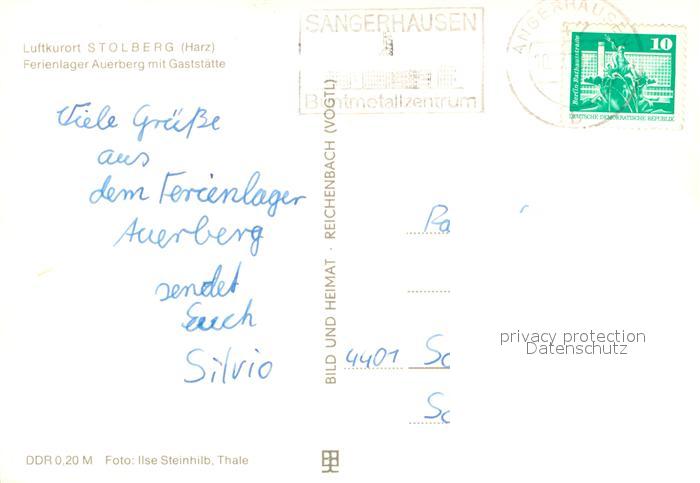 Luftkurort STOLBERG (Harz)
Ferienlager Auerberg mit Gaststätte
Viele Grüße
aus
dem Ferienlager
Auerberg
sendet
Euch
Silvio
DDR 0,20 M Foto: Ilse Steinhilb, Thale
BILD UND HEIMAT · REICHENBACH (VOGTL)
SANGERHAUSEN
Buntmetallzentrum
SANGERHAUSEN
10
Berlin Rathausstraße
DEUTSCHE DEMOKRATISCHE REPUBLIK
Ra
4401 Sc
Sc
privacy protection
Datenschutz